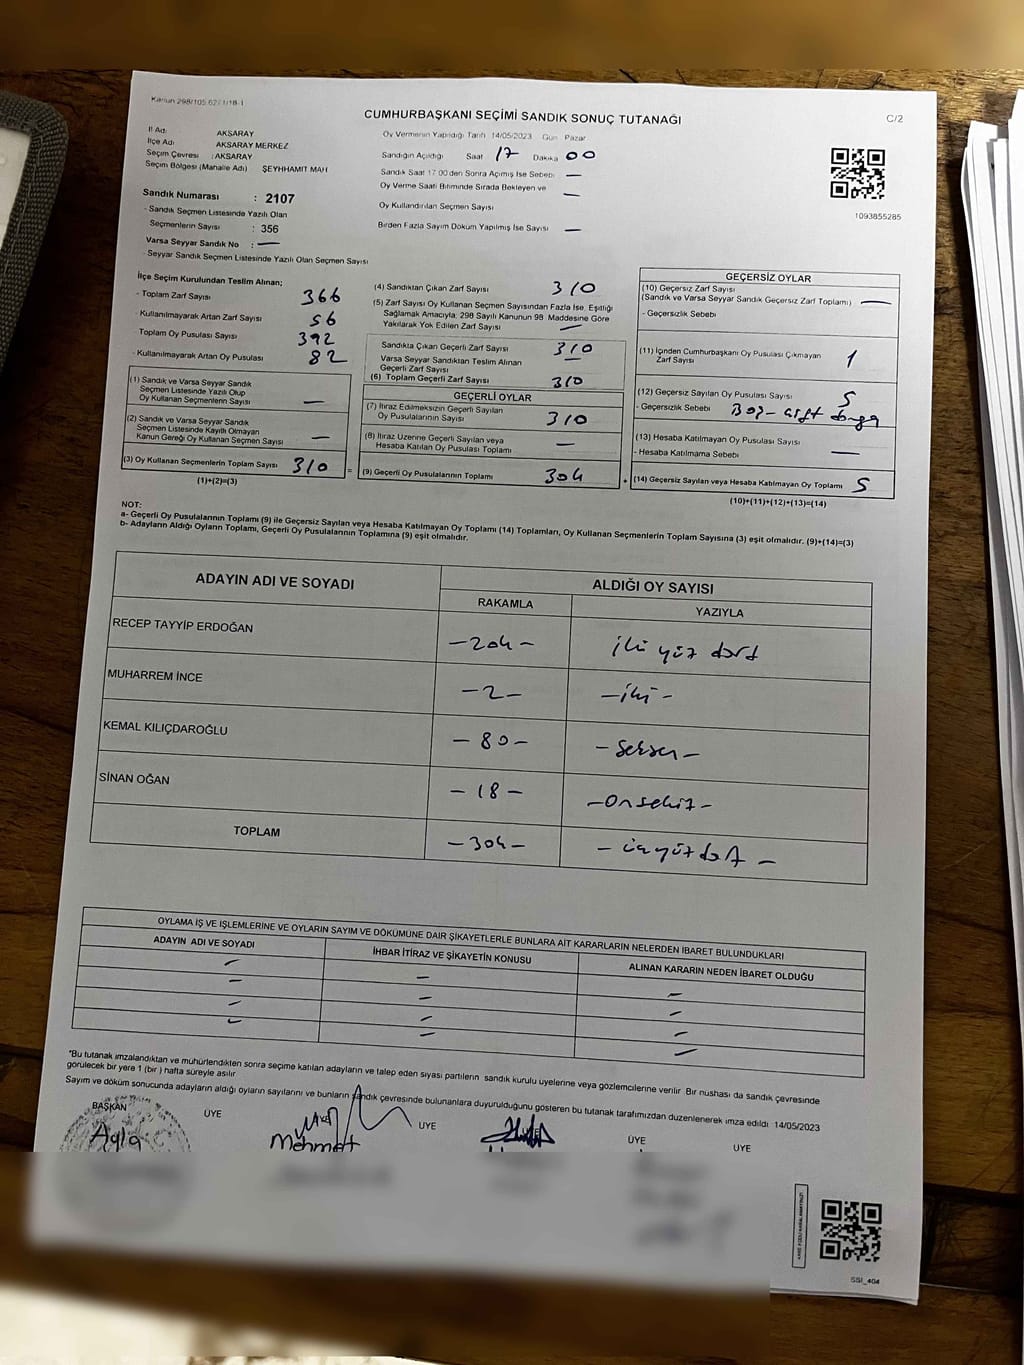 Kanun 298/105,627/1/18-1
CUMHURBAŞKANI SEÇİMİ SANDIK SONUÇ TUTANAĞI
C/2
İl Adı AKSARAY
İlçe Adı AKSARAY MERKEZ
Seçim Çevresi : AKSARAY
Seçim Bölgesi (Mahalle Adı) ŞEYHHAMİT MAH
Sandık Numarası : 2107
- Sandık Seçmen Listesinde Yazılı Olan
Seçmenlerin Sayısı : 356
Varsa Seyyar Sandık No : —
- Seyyar Sandık Seçmen Listesinde Yazılı Olan Seçmen Sayısı
Oy Vermenin Yapıldığı Tarih 14/05/2023 Gün Pazar
Sandığın Açıldığı Saat 17 Dakika 00
Sandık Saat 17:00'den Sonra Açımış İse Sebebi —
Oy Verme Saati Bitiminde Sırada Bekleyen ve —
Oy Kullandırılan Seçmen Sayısı
Birden Fazla Sayım Döküm Yapılmış İse Sayısı —
1093855285
İlçe Seçim Kurulundan Teslim Alınan;
- Toplam Zarf Sayısı 366
- Kullanılmayarak Artan Zarf Sayısı 56
- Toplam Oy Pusulası Sayısı 392
- Kullanılmayarak Artan Oy Pusulası 82
(1) Sandık ve Varsa Seyyar Sandık
Seçmen Listesinde Yazılı Olup
Oy Kullanan Seçmenlerin Sayısı —
(2) Sandık ve Varsa Seyyar Sandık
Seçmen Listesinde Kayıtlı Olmayan
Kanun Gereği Oy Kullanan Seçmen Sayısı —
(3) Oy Kullanan Seçmenlerin Toplam Sayısı 310
(1)+(2)=(3)
(4) Sandıktan Çıkan Zarf Sayısı 310
(5) Zarf Sayısı Oy Kullanan Seçmen Sayısından Fazla İse, Eşitliği
Sağlamak Amacıyla, 298 Sayılı Kanunun 98 Maddesine Göre
Yakılarak Yok Edilen Zarf Sayısı —
Sandıkta Çıkan Geçerli Zarf Sayısı 310
Varsa Seyyar Sandıktan Teslim Alınan —
Geçerli Zarf Sayısı
(6) Toplam Geçerli Zarf Sayısı 310
GEÇERLİ OYLAR
(7) İtiraz Edilmeksizin Geçerli Sayılan
Oy Pusulalarının Sayısı 310
(8) İtiraz Üzerine Geçerli Sayılan veya
Hesaba Katılan Oy Pusulası Toplamı —
= (9) Geçerli Oy Pusulalarının Toplamı 304
GEÇERSİZ OYLAR
(10) Geçersiz Zarf Sayısı
(Sandık ve Varsa Seyyar Sandık Geçersiz Zarf Toplamı) —
- Geçersizlik Sebebi
(11) İçinden Cumhurbaşkanı Oy Pusulası Çıkmayan
Zarf Sayısı 1
(12) Geçersiz Sayılan Oy Pusulası Sayısı 5
- Geçersizlik Sebebi Boş- çift damga
(13) Hesaba Katılmayan Oy Pusulası Sayısı
- Hesaba Katılmama Sebebi —
+ (14) Geçersiz Sayılan veya Hesaba Katılmayan Oy Toplamı 5
(10)+(11)+(12)+(13)=(14)
NOT:
a- Geçerli Oy Pusulalarının Toplamı (9) ile Geçersiz Sayılan veya Hesaba Katılmayan Oy Toplamı (14) Toplamları, Oy Kullanan Seçmenlerin Toplam Sayısına (3) eşit olmalıdır. (9)+(14)=(3)
b- Adayların Aldığı Oyların Toplamı, Geçerli Oy Pusulalarının Toplamına (9) eşit olmalıdır.
ADAYIN ADI VE SOYADI ALDIĞI OY SAYISI
RAKAMLA YAZIYLA
RECEP TAYYİP ERDOĞAN -204- iki yüz dört
MUHARREM İNCE -2- -iki-
KEMAL KILIÇDAROĞLU -80- -seksen-
SİNAN OĞAN -18- -onsekiz-
TOPLAM -304- -üçyüzdört-
OYLAMA İŞ VE İŞLEMLERİNE VE OYLARIN SAYIM VE DÖKÜMÜNE DAİR ŞİKAYETLERLE BUNLARA AİT KARARLARIN NELERDEN İBARET BULUNDUKLARI
ADAYIN ADI VE SOYADI İHBAR İTİRAZ VE ŞİKAYETİN KONUSU ALINAN KARARIN NEDEN İBARET OLDUĞU
— — —
— — —
— — —
— — —
*Bu tutanak imzalandıktan ve mühürlendikten sonra seçime katılan adayların ve talep eden siyasi partilerin sandık kurulu üyelerine veya gözlemcilerine verilir. Bir nüshası da sandık çevresinde
görülecek bir yere 1 (bir) hafta süreyle asılır
Sayım ve döküm sonucunda adayların aldığı oyların sayılarını ve bunların sandık çevresinde bulunanlara duyurulduğunu gösteren bu tutanak tarafımızdan düzenlenerek imza edildi 14/05/2023
BAŞKAN ÜYE ÜYE ÜYE ÜYE ÜYE
Ayla Mehmet
SSİ_404